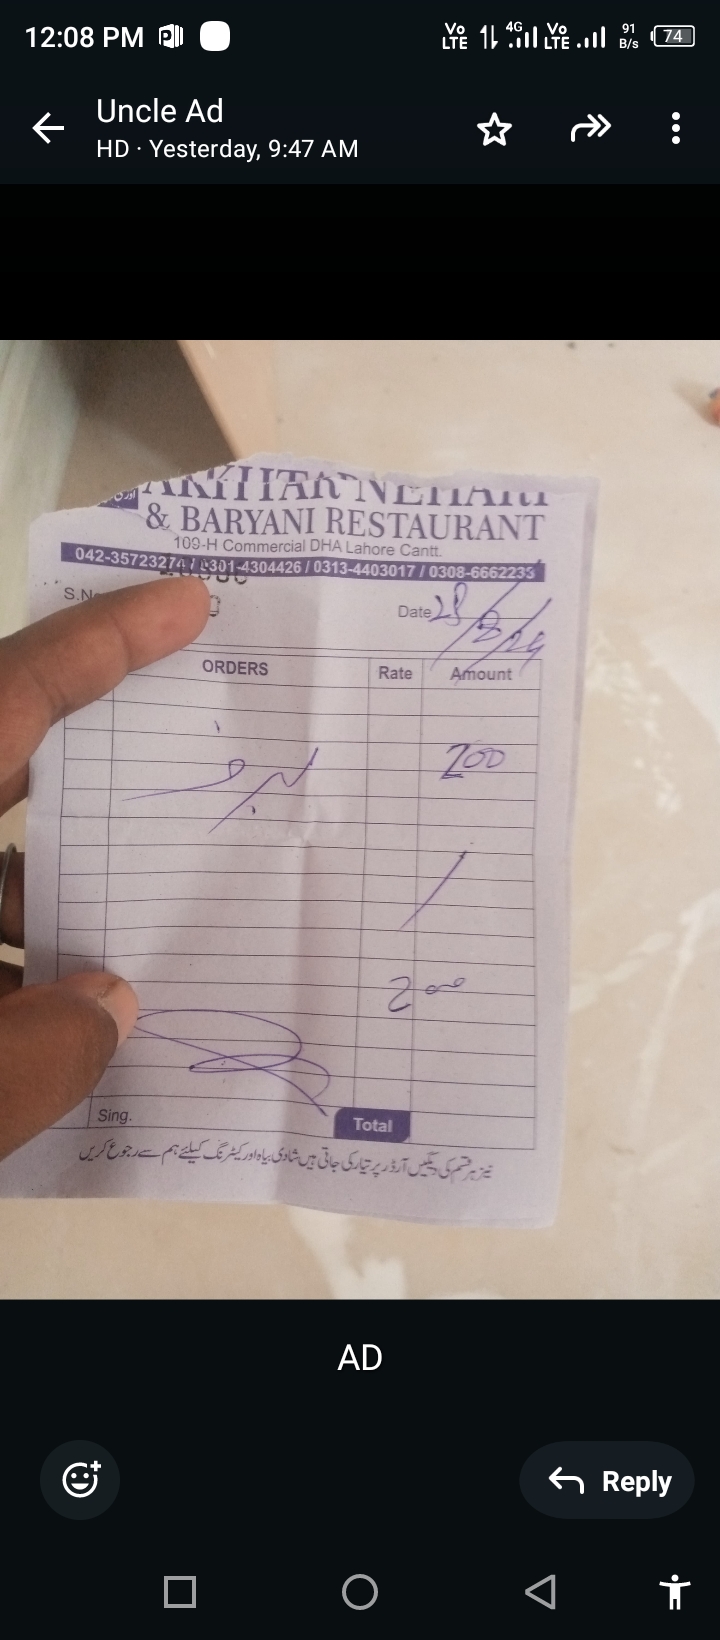 12:08 PM
Vo LTE 4G Vo LTE 91 B/s 74
Uncle Ad
HD · Yesterday, 9:47 AM
AKHTAR NEHARI
& BARYANI RESTAURANT
109-H Commercial DHA Lahore Cantt.
042-35723274 / 0301-4304426 / 0313-4403017 / 0308-6662235
S.No
Date 28/8/24
ORDERS Rate Amount
200
200
Sing.
Total
نیز ہر قسم کی دیگیں آرڈر پر تیار کی جاتی ہیں شادی بیاہ اور کیٹرنگ کیلئے ہم سے رجوع کریں
AD
Reply